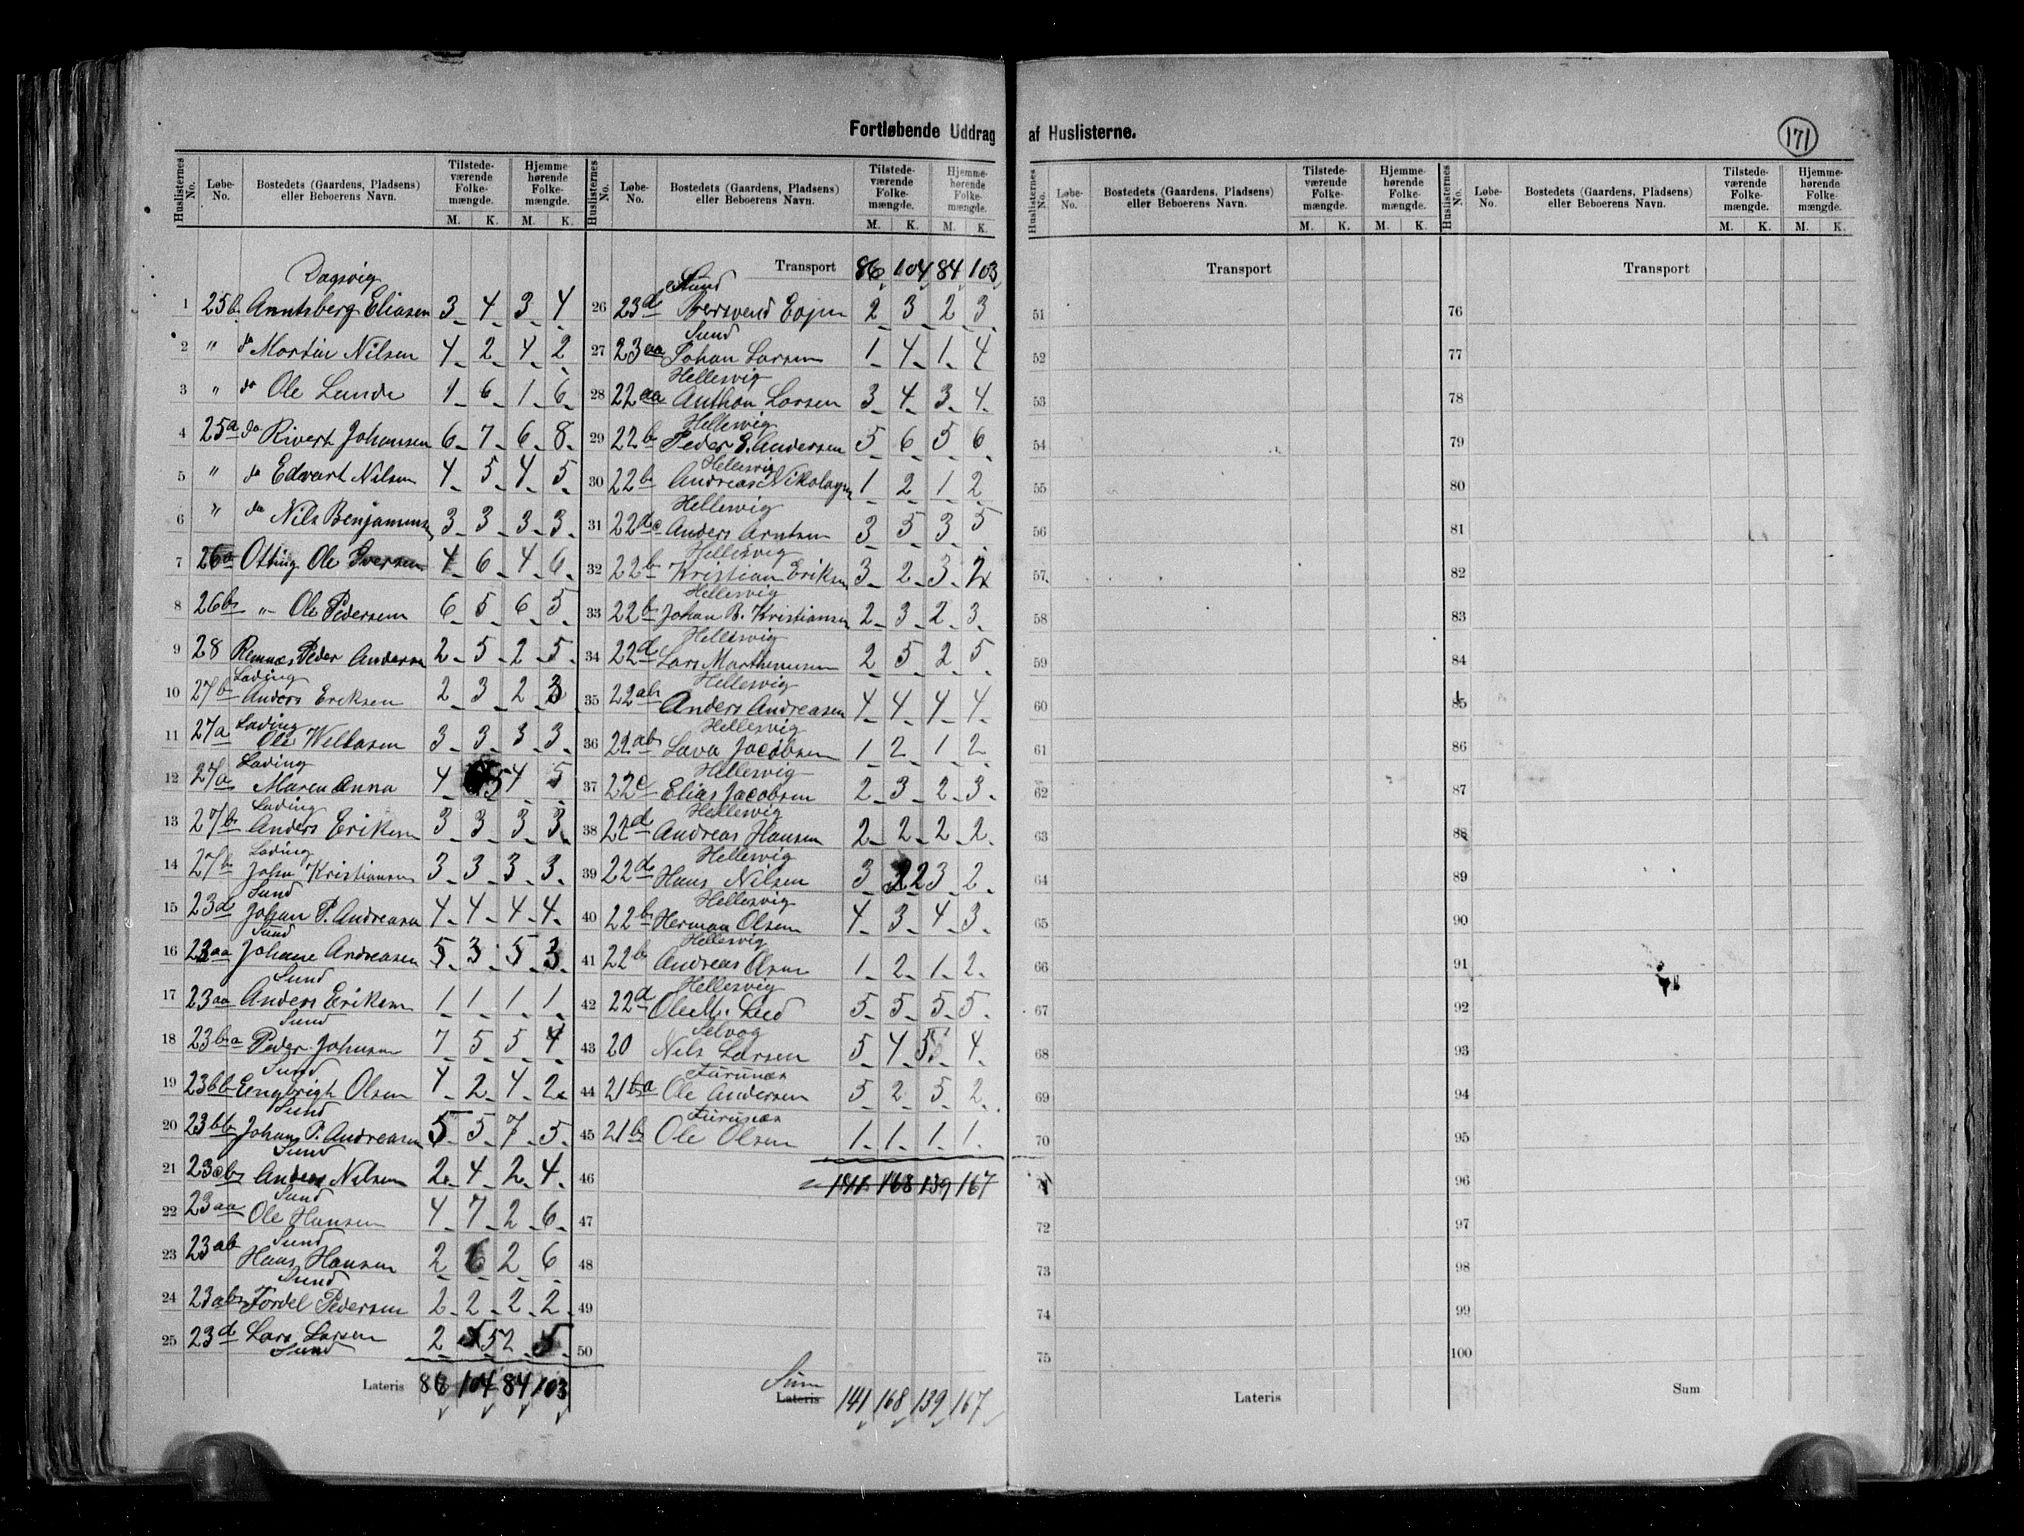 Fortløbende Uddrag af Huslisterne.
171
Huslisternes No. Løbe-No. Bostedets (Gaardens, Pladsens) eller Beboerens Navn. Tilstedeværende Folkemængde. M. K. Hjemmehørende Folkemængde. M. K.
Dagsvig
1 25b Arntsberg Eliasen 3 4 3 4
2 " do Martin Nilsen 4 2 4 2
3 " do Ole Lunde 1 6 1 6
4 25a do Rivert Johansen 6 7 6 8
5 " do Edvart Nilsen 4 5 4 5
6 " do Nils Benjaminsen 3 3 3 3
7 26a Otting Ole Iversen 4 6 4 6
8 26b " Ole Pedersen 6 5 6 5
9 28 Remnæs Peder Andersen 2 5 2 5
Lading
10 27b Anders Eriksen 2 3 2 3
Lading
11 27a Ole 3 3 3 3
Lading
12 27a Maren Anna 4 5 4 5
Lading
13 27b Anders Eriksen 3 3 3 3
Lading
14 27b John Kristiansen 3 3 3 3
Sund
15 23d Johan P. Andreasen 4 4 4 4
Sund
16 23aa Johane Andreasen 5 3 5 3
Sund
17 23aa Anders Eriksen 1 1 1 1
Sund
18 23ba Peder Johnsen 7 5 5 4
Sund
19 23bb Engbrigt Olsen 4 2 4 2
Sund
20 23bb Johan P. Andreasen 5 5 7 5
Sund
21 23cb Anders Nilsen 2 4 2 4
Sund
22 23aa Ole Hansen 4 7 2 6
Sund
23 23ab Hans Hansen 2 6 2 6
Sund
24 23ab Tordel Pedersen 2 2 2 2
25 23d Lars Larsen 2 5 2 5
Sund
Lateris 86 104 84 103
Huslisternes No. Løbe-No. Bostedets (Gaardens, Pladsens) eller Beboerens Navn. Tilstedeværende Folkemængde. M. K. Hjemmehørende Folkemængde. M. K.
Transport 86 104 84 103
Sund
26 23d 2 3 2 3
Sund
27 23aa Johan Larsen 1 4 1 4
Hellesvig
28 22aa Anthon Larsen 3 4 3 4
Hellesvig
29 22b Peder E. Andersen 5 6 5 6
Hellesvig
30 22b Andreas Nikolaysen 1 2 1 2
Hellesvig
31 22dc Anders Arntsen 3 5 3 5
Hellesvig
32 22b Kristian Eriksen 3 2 3 2
Hellesvig
33 22b Johan B. Kristiansen 2 3 2 3
Hellesvig
34 22d Lars Marthinusen 2 5 2 5
Hellesvig
35 22ab Anders Andreasen 4 4 4 4
Hellesvig
36 22ab Lava Jacobsen 1 2 1 2
Hellesvig
37 22c Elias Jacobsen 2 3 2 3
Hellesvig
38 22d Andreas Hansen 2 2 2 2
Hellesvig
39 22d Hans Nilsen 3 2 3 2
Hellesvig
40 22b Herman Olsen 4 3 4 3
Hellesvig
41 22b Andreas Olsen 1 2 1 2
Hellesvig
42 22d Ole M. Lied 5 5 5 5
Selvog
43 20 Nils Larsen 5 4 5 4
Furunæs
44 21ba Ole Andersen 5 2 5 2
Furunæs
45 21b Ole Olsen 1 1 1 1
46 141 168 139 167
47
48
49
50
Sum
Lateris 141 168 139 167
Huslisternes No. Løbe-No. Bostedets (Gaardens, Pladsens) eller Beboerens Navn. Tilstedeværende Folkemængde. M. K. Hjemmehørende Folkemængde. M. K.
Transport
51
52
53
54
55
56
57
58
59
60
61
62
63
64
65
66
67
68
69
70
72
73
74
75
Lateris
Huslisternes No. Løbe-No. Bostedets (Gaardens, Pladsens) eller Beboerens Navn. Tilstedeværende Folkemængde. M. K. Hjemmehørende Folkemængde. M. K.
Transport
76
77
78
79
80
81
82
83
84
85
86
87
88
89
90
91
92
93
94
95
96
97
98
99
100
Sum